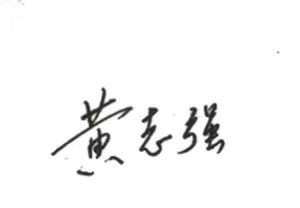 黄志强